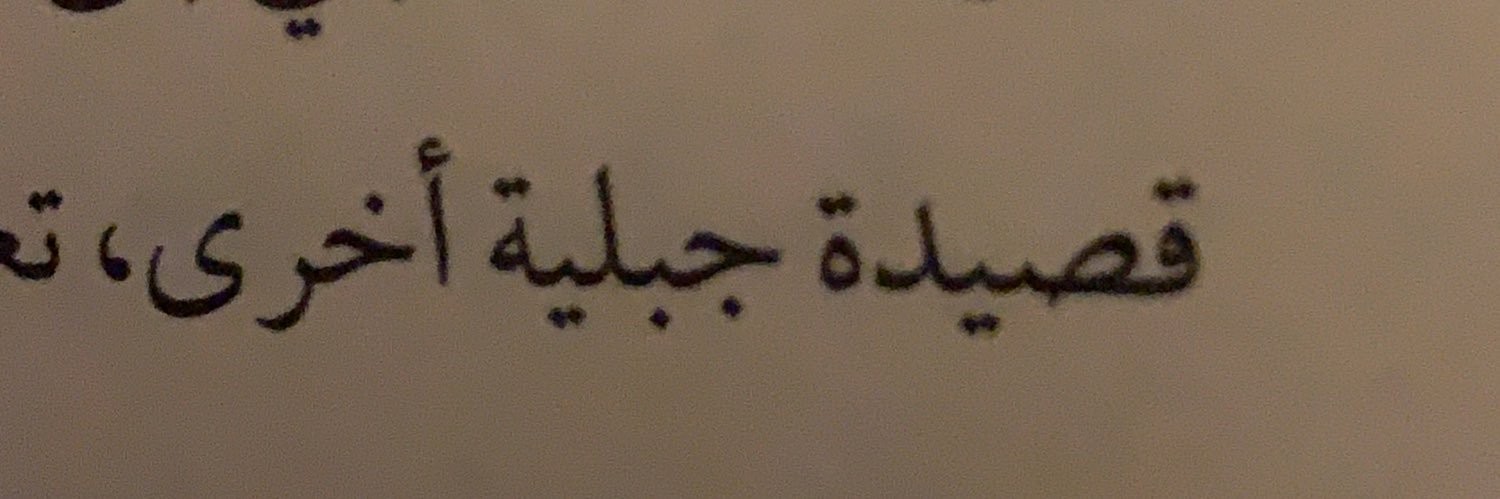 قصيدة جبلية أخرى،